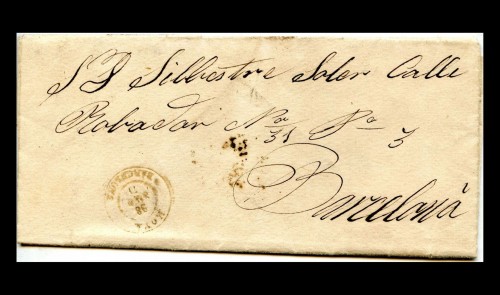 S D Silbestre Soler Calle
Robador Nº 31 Pº 3
Barcelona